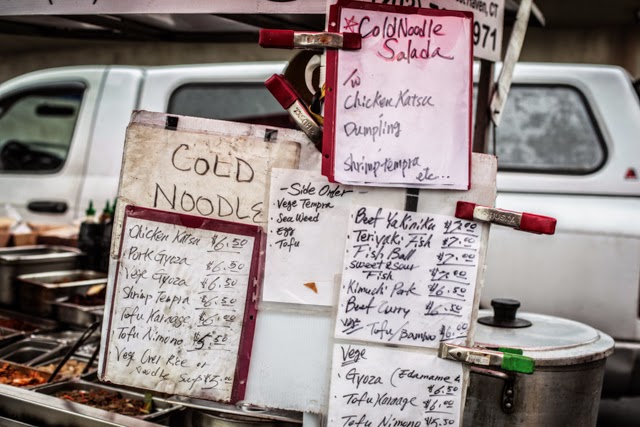 haven, CT
971
Cold Noodle
Salada
w
Chicken Katsu
Dumpling
Shrimp Tempra
etc...
COLD
NOODLE
Chicken Katsu $6.50
Pork Gyoza $6.50
Vege Gyoza $6.50
Shrimp Tempra $6.50
Tofu Karaage $6.50
Tofu Nimono $5.50
Vege Over Rice or
Noodle Soup $5.00
- Side Order -
Vege Tempra
Sea Weed
Egg
Tofu
Beef Yakiniku $7.00
Teriyaki Fish $7.00
Fish Ball $7.00
sweet & sour
Fish $7.00
Kimuchi Pork $6.50
Beef Curry $6.50
Vege Tofu/Bamboo $6.00
Vege
Gyoza (Edamame &
$6.50
Tofu Karaage $6.00
Tofu Nimono